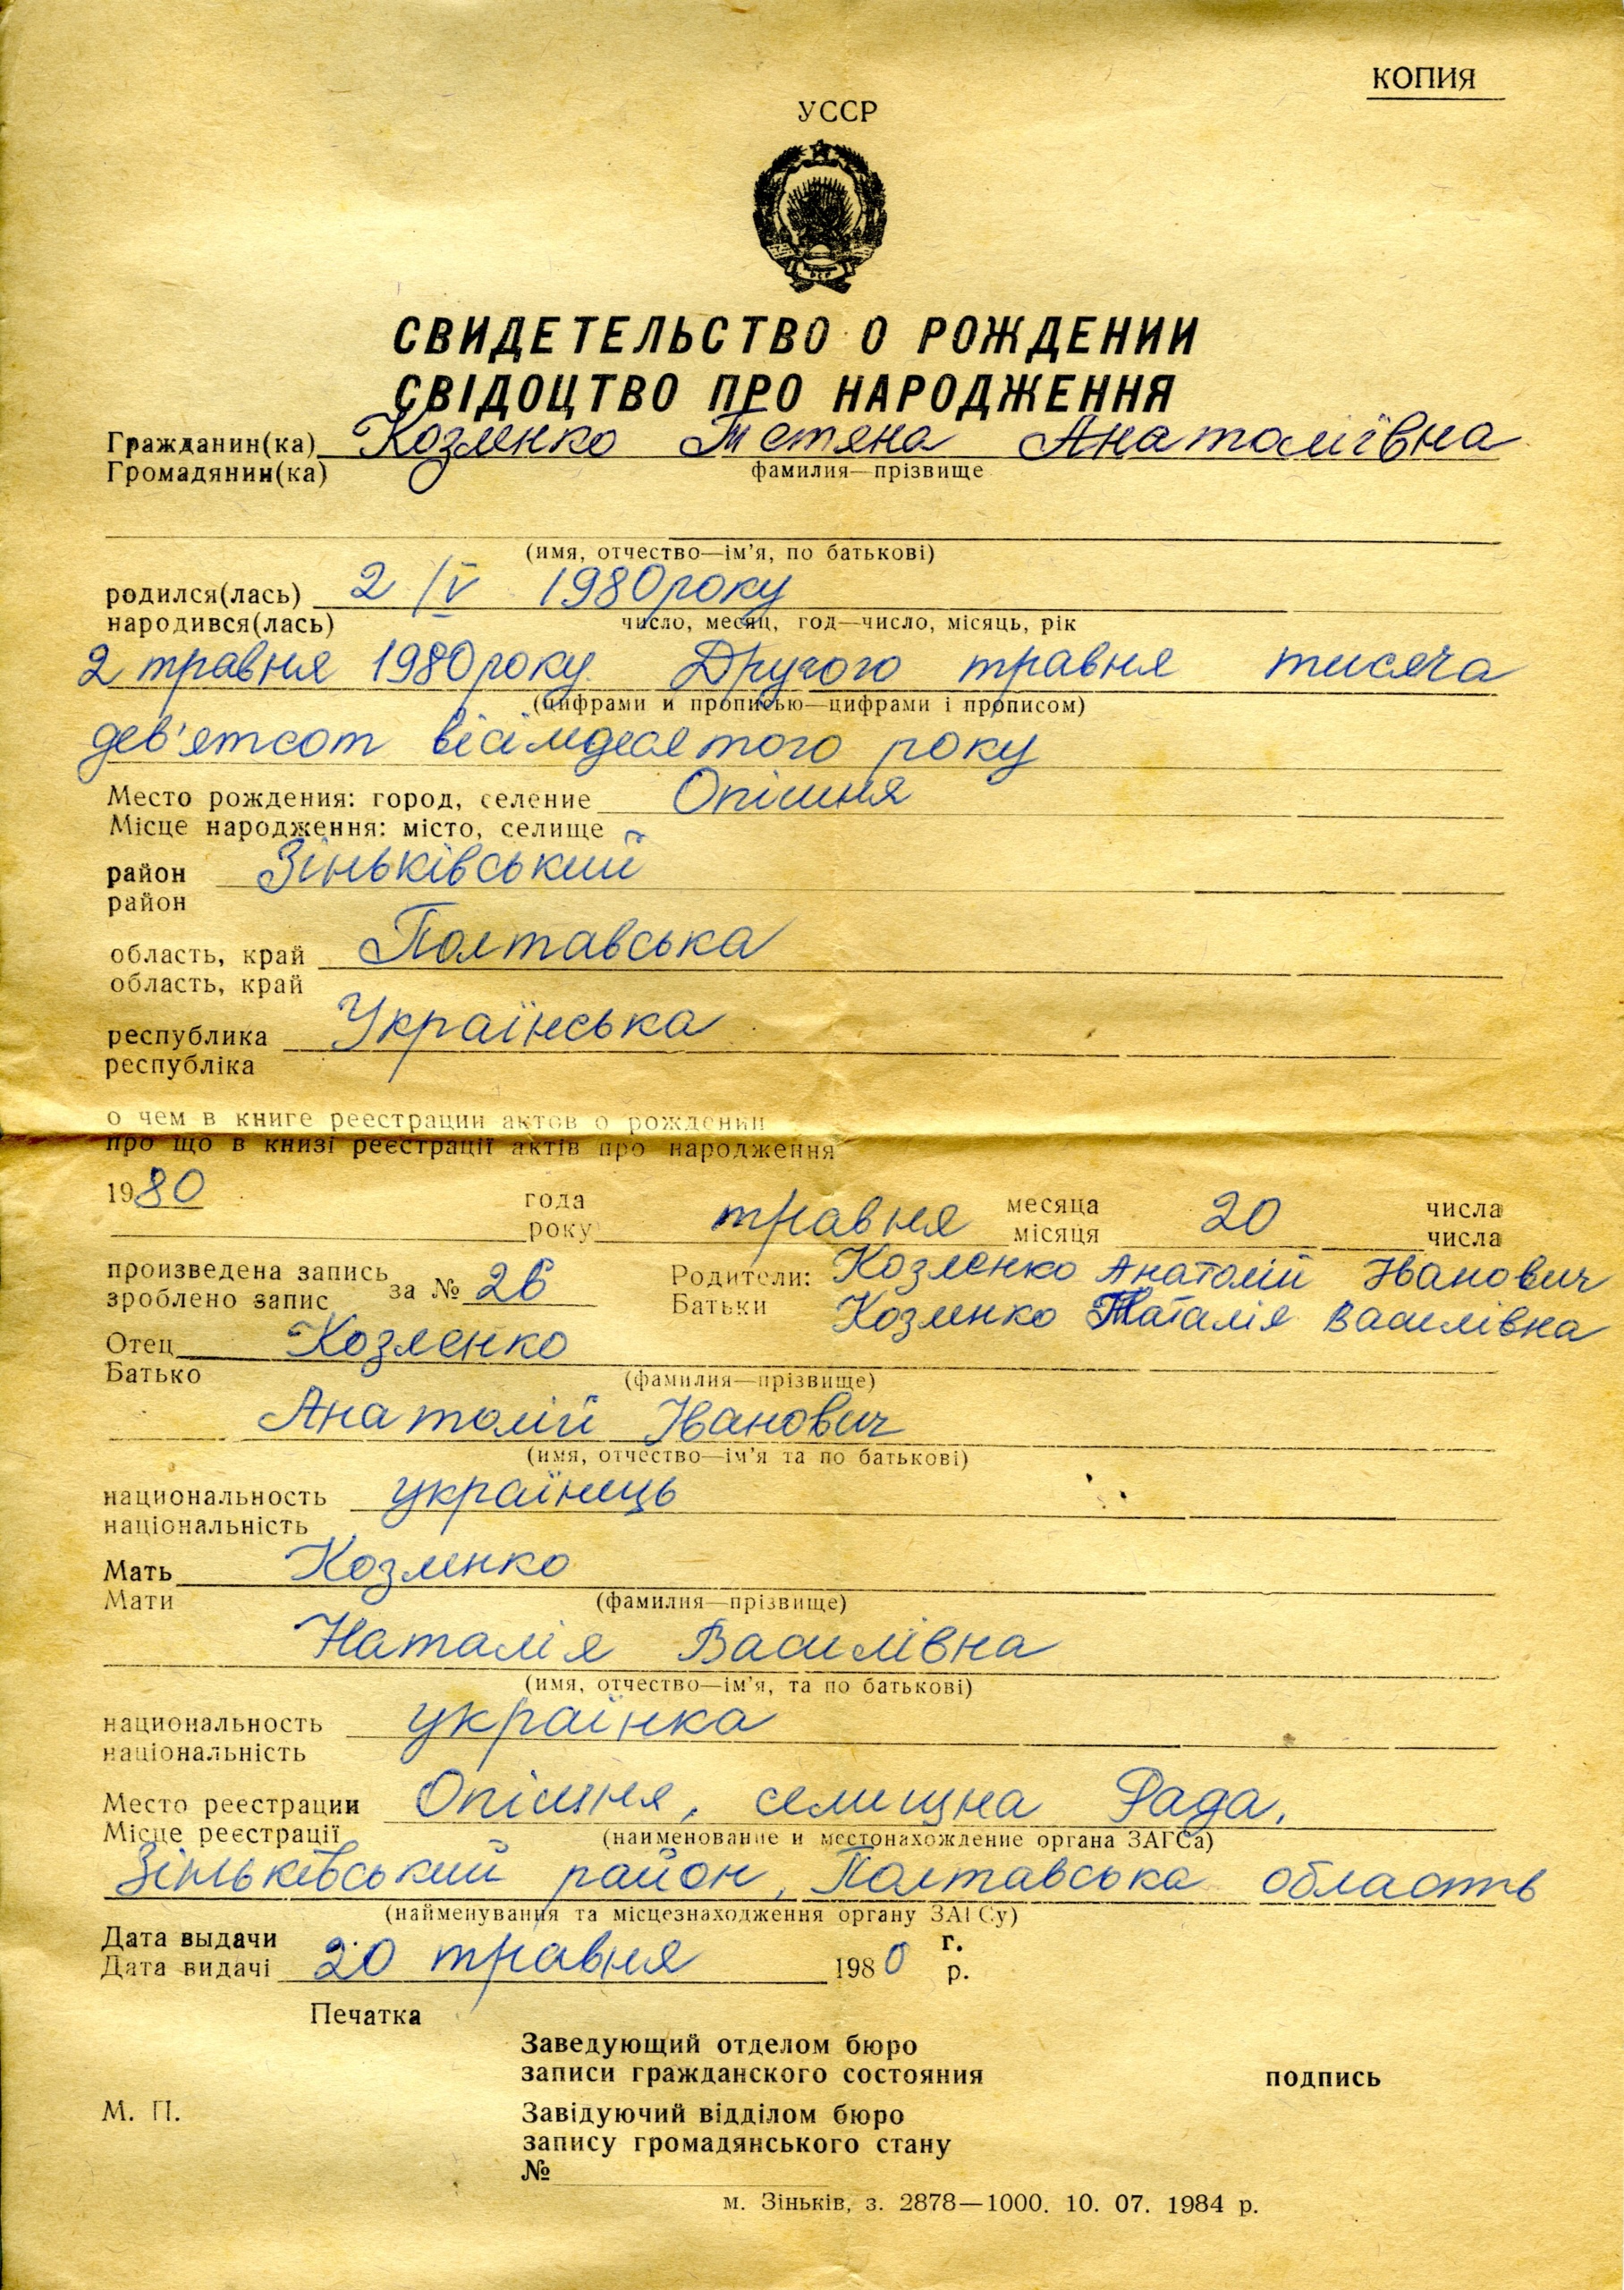 КОПИЯ
УССР
СВИДЕТЕЛЬСТВО О РОЖДЕНИИ
СВІДОЦТВО ПРО НАРОДЖЕННЯ
Гражданин(ка) Козленко Тетяна Анатоліївна
Громадянин(ка) фамилия—прізвище
(имя, отчество—ім'я, по батькові)
родился(лась) 2/V 1980 року
народився(лась) число, месяц, год—число, місяць, рік
2 травня 1980 року. Другого травня тисяча
(цифрами и прописью—цифрами і прописом)
дев'ятсот вісімдесятого року
Место рождения: город, селение Опішня
Місце народження: місто, селище
район Зіньківський
район
область, край Полтавська
область, край
республика Українська
республіка
о чем в книге реестрации актов о рождении
про що в книзі реєстрації актів про народження
1980 года травня месяца 20 числа
року місяця числа
произведена запись за № 26 Родители: Козленко Анатолій Іванович
зроблено запис Батьки Козленко Наталія Василівна
Отец Козленко
Батько (фамилия—прізвище)
Анатолій Іванович
(имя, отчество—ім'я та по батькові)
национальность українець
національність
Мать Козленко
Мати (фамилия—прізвище)
Наталія Василівна
(имя, отчество—ім'я, та по батькові)
национальность українка
національність
Место реестрации Опішня, селищна Рада,
Місце реєстрації (наименование и местонахождение органа ЗАГСа)
Зіньківський район, Полтавська область
(найменування та місцезнаходження органу ЗАГСу)
Дата выдачи г.
Дата видачі 20 травня 1980 р.
Печатка
Заведующий отделом бюро
записи гражданского состояния подпись
М. П. Завідуючий відділом бюро
запису громадянського стану
№
м. Зіньків, з. 2878—1000. 10. 07. 1984 р.